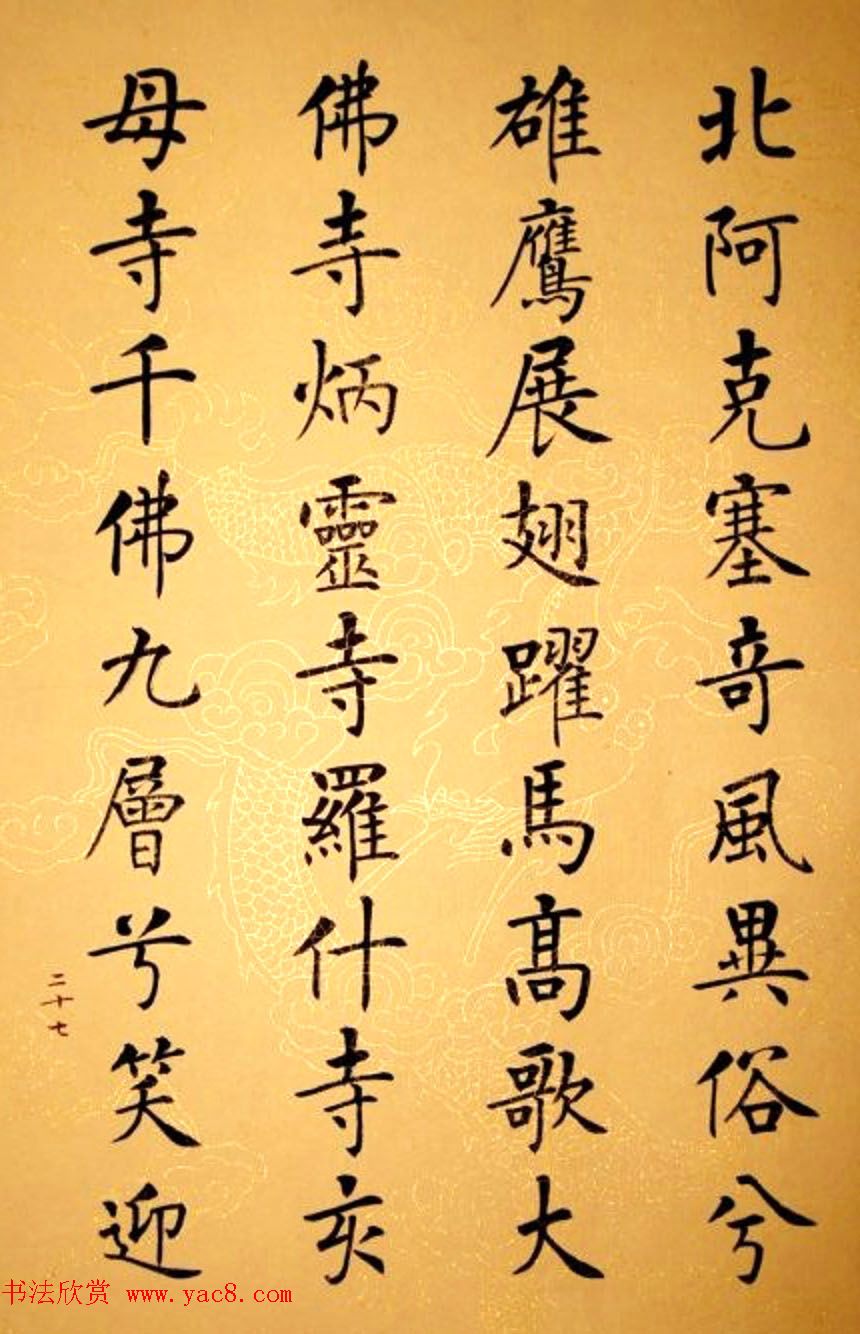 北阿克塞奇風異俗兮
雄鷹展翅躍馬高歌大
佛寺炳靈寺羅什寺亥
母寺千佛九層兮笑迎
二十七
书法欣赏 www.yac8.com